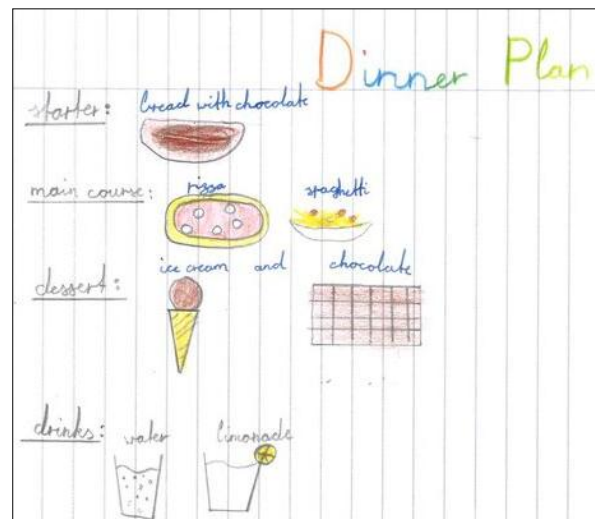 Dinner Plan
starter: bread with chocolate
main course: pizza spaghetti
dessert: ice cream and chocolate
drinks: water limonade